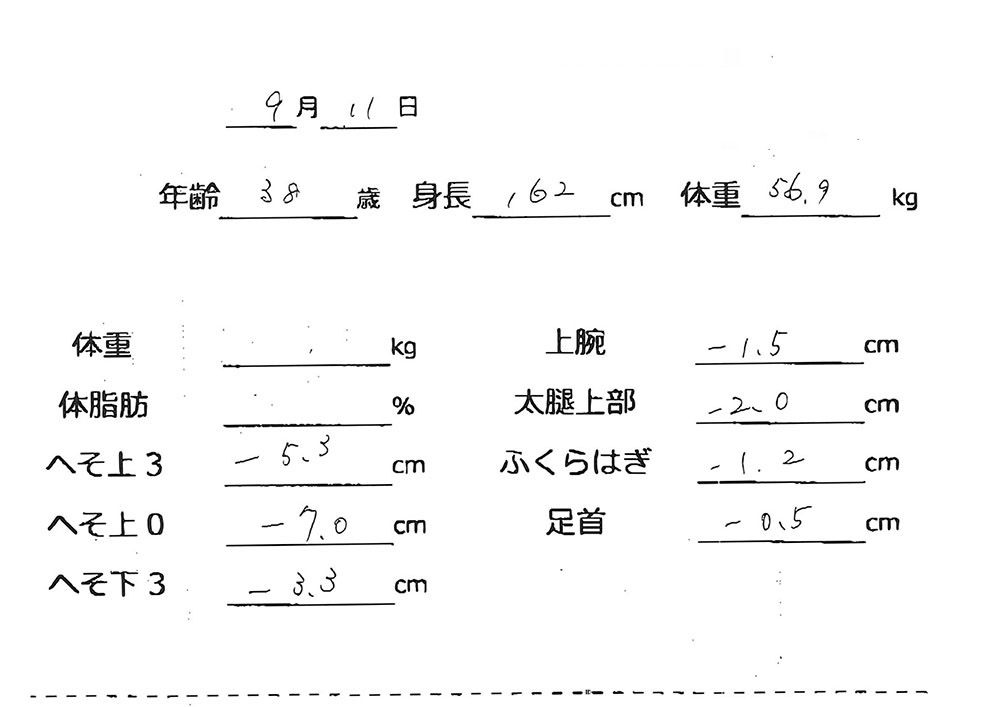 9月11日
年齢 38 歳 身長 162 cm 体重 56.9 kg
体重 kg 上腕 -1.5 cm
体脂肪 % 太腿上部 -2.0 cm
へそ上3 -5.3 cm ふくらはぎ -1.2 cm
へそ上0 -7.0 cm 足首 -0.5 cm
へそ下3 -3.3 cm